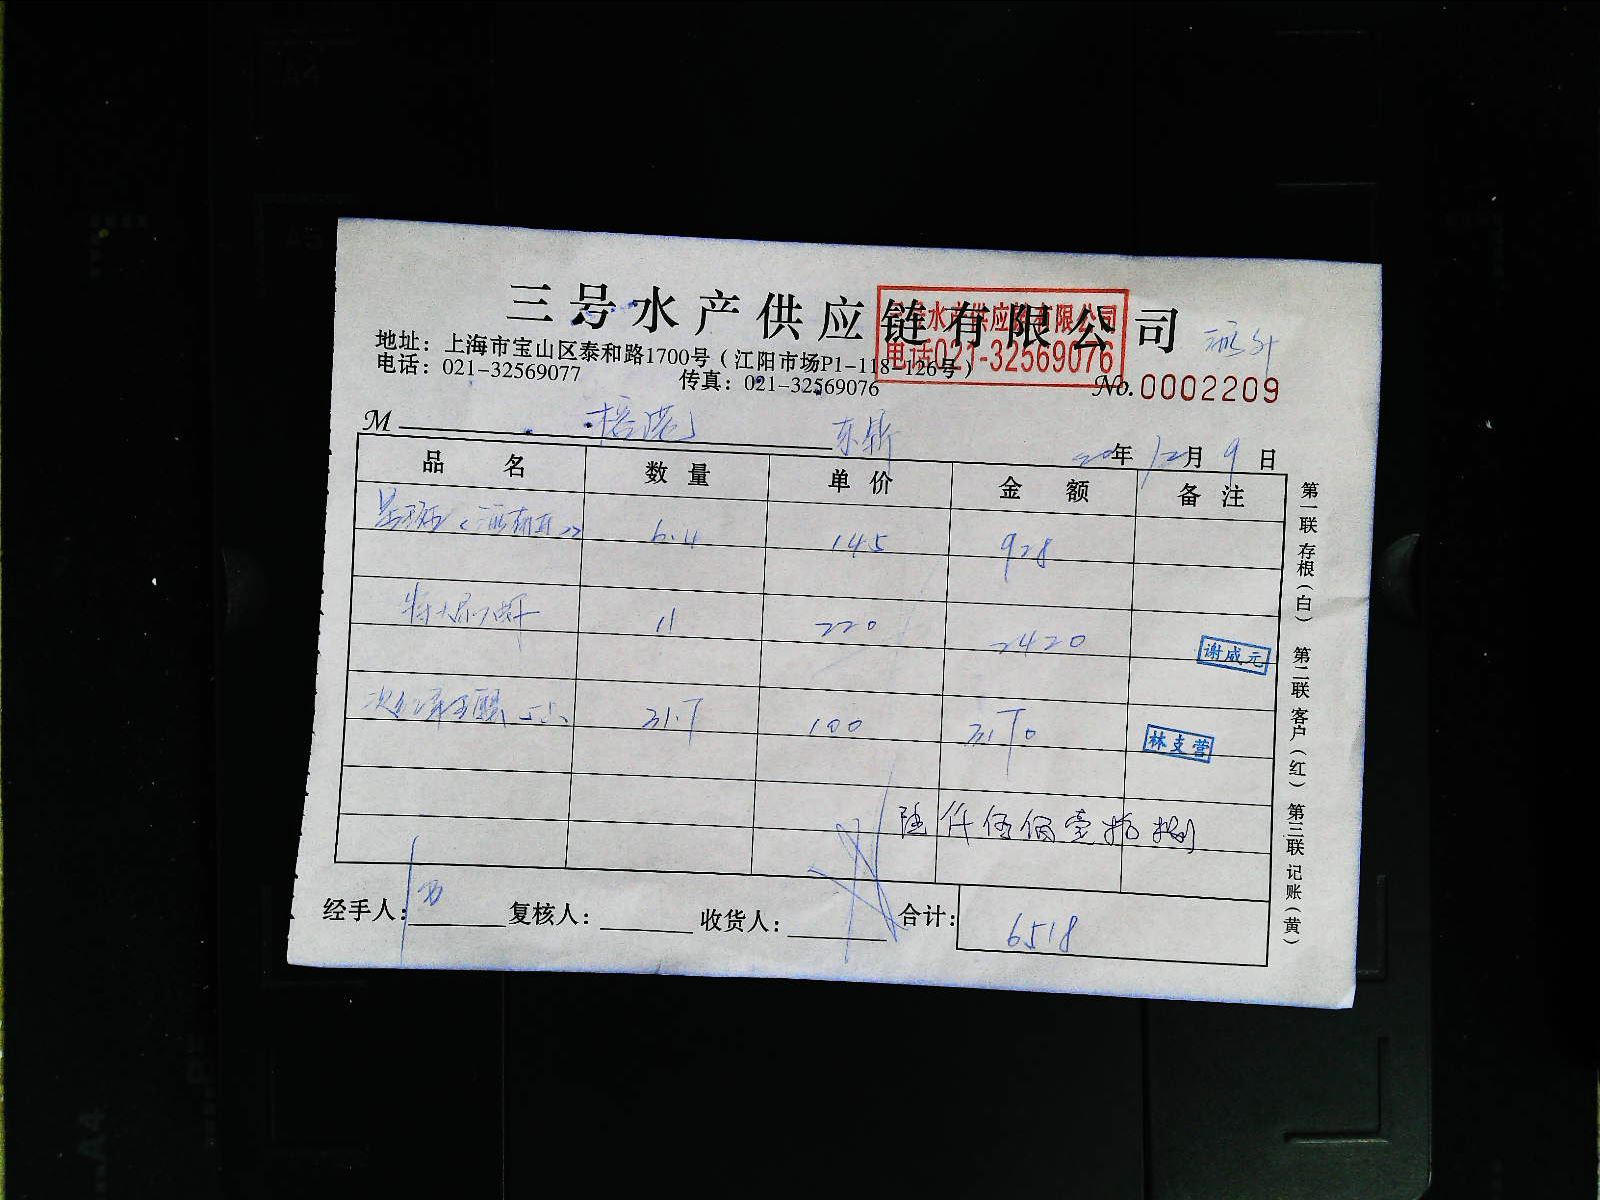 三号水产供应链有限公司
三号水产供应链有限公司
电话021-32569076
地址：上海市宝山区泰和路1700号（江阳市场P1-118-126号）
电话：021-32569077 传真：021-32569076
No.0002209
M 榕港 东鼎 20年12月9日
品名 数量 单价 金额 备注
6.4 145 928
11 220 2420
谢威元
100
林支营
陆仟伍佰壹拾捌
经手人： 复核人： 收货人： 合计：6518
第一联 存根（白） 第二联 客户（红） 第三联 记账（黄）